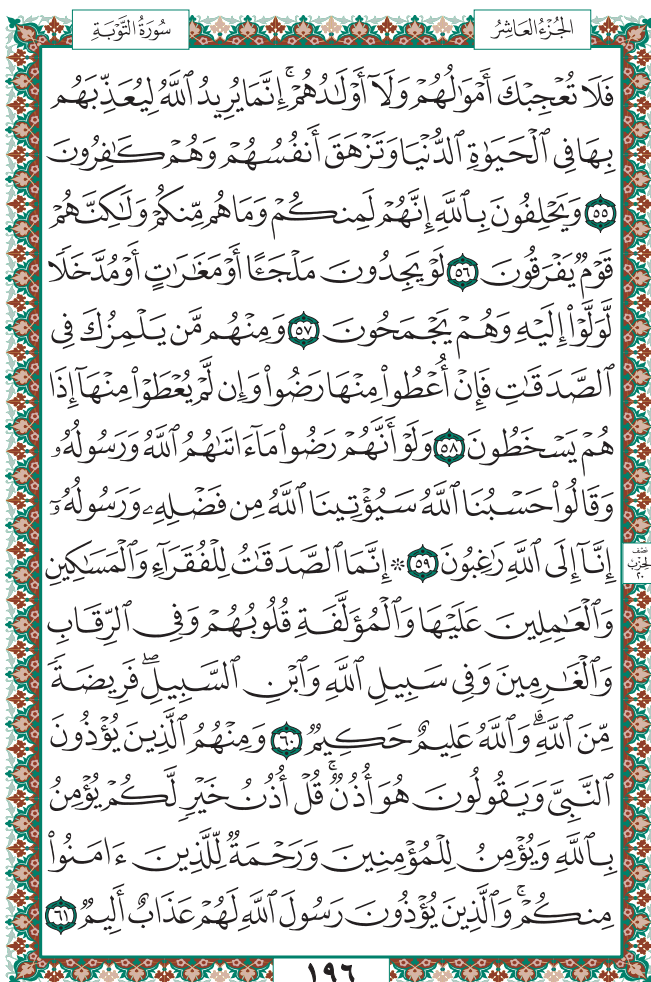 الجُزْءُ العَاشِرُ
سُورَةُ التَّوْبَةِ
فَلَا تُعْجِبْكَ أَمْوَٰلُهُمْ وَلَآ أَوْلَٰدُهُمْ ۚ إِنَّمَا يُرِيدُ ٱللَّهُ لِيُعَذِّبَهُم
بِهَا فِى ٱلْحَيَوٰةِ ٱلدُّنْيَا وَتَزْهَقَ أَنفُسُهُمْ وَهُمْ كَٰفِرُونَ
٥٥ وَيَحْلِفُونَ بِٱللَّهِ إِنَّهُمْ لَمِنكُمْ وَمَا هُم مِّنكُمْ وَلَٰكِنَّهُمْ
قَوْمٌ يَفْرَقُونَ ٥٦ لَوْ يَجِدُونَ مَلْجَـًٔا أَوْ مَغَٰرَٰتٍ أَوْ مُدَّخَلًا
لَّوَلَّوْا۟ إِلَيْهِ وَهُمْ يَجْمَحُونَ ٥٧ وَمِنْهُم مَّن يَلْمِزُكَ فِى
ٱلصَّدَقَٰتِ فَإِنْ أُعْطُوا۟ مِنْهَا رَضُوا۟ وَإِن لَّمْ يُعْطَوْا۟ مِنْهَآ إِذَا
هُمْ يَسْخَطُونَ ٥٨ وَلَوْ أَنَّهُمْ رَضُوا۟ مَآ ءَاتَىٰهُمُ ٱللَّهُ وَرَسُولُهُۥ
وَقَالُوا۟ حَسْبُنَا ٱللَّهُ سَيُؤْتِينَا ٱللَّهُ مِن فَضْلِهِۦ وَرَسُولُهُۥٓ
إِنَّآ إِلَى ٱللَّهِ رَٰغِبُونَ ٥٩ ۞ إِنَّمَا ٱلصَّدَقَٰتُ لِلْفُقَرَآءِ وَٱلْمَسَٰكِينِ
نصف
الحزب
٢٠
وَٱلْعَٰمِلِينَ عَلَيْهَا وَٱلْمُؤَلَّفَةِ قُلُوبُهُمْ وَفِى ٱلرِّقَابِ
وَٱلْغَٰرِمِينَ وَفِى سَبِيلِ ٱللَّهِ وَٱبْنِ ٱلسَّبِيلِ ۖ فَرِيضَةً
مِّنَ ٱللَّهِ ۗ وَٱللَّهُ عَلِيمٌ حَكِيمٌ ٦٠ وَمِنْهُمُ ٱلَّذِينَ يُؤْذُونَ
ٱلنَّبِىَّ وَيَقُولُونَ هُوَ أُذُنٌ ۚ قُلْ أُذُنُ خَيْرٍ لَّكُمْ يُؤْمِنُ
بِٱللَّهِ وَيُؤْمِنُ لِلْمُؤْمِنِينَ وَرَحْمَةٌ لِّلَّذِينَ ءَامَنُوا۟
مِنكُمْ ۚ وَٱلَّذِينَ يُؤْذُونَ رَسُولَ ٱللَّهِ لَهُمْ عَذَابٌ أَلِيمٌ ٦١
١٩٦